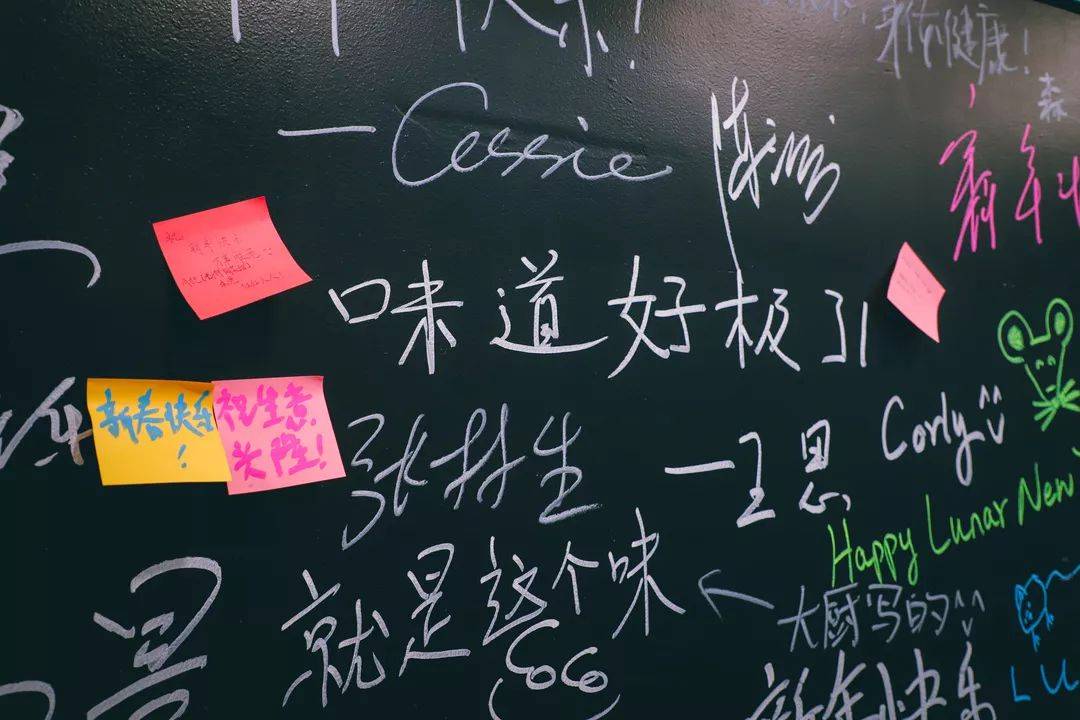 身体健康!
森
一Cessie
新年快
味道好极了
新春快乐
!
祝生意
兴隆!
张林生
一王思
Corly^^
Happy Lunar New
就是这个味
←大厨写的^^
CoCo
新年快乐
LU